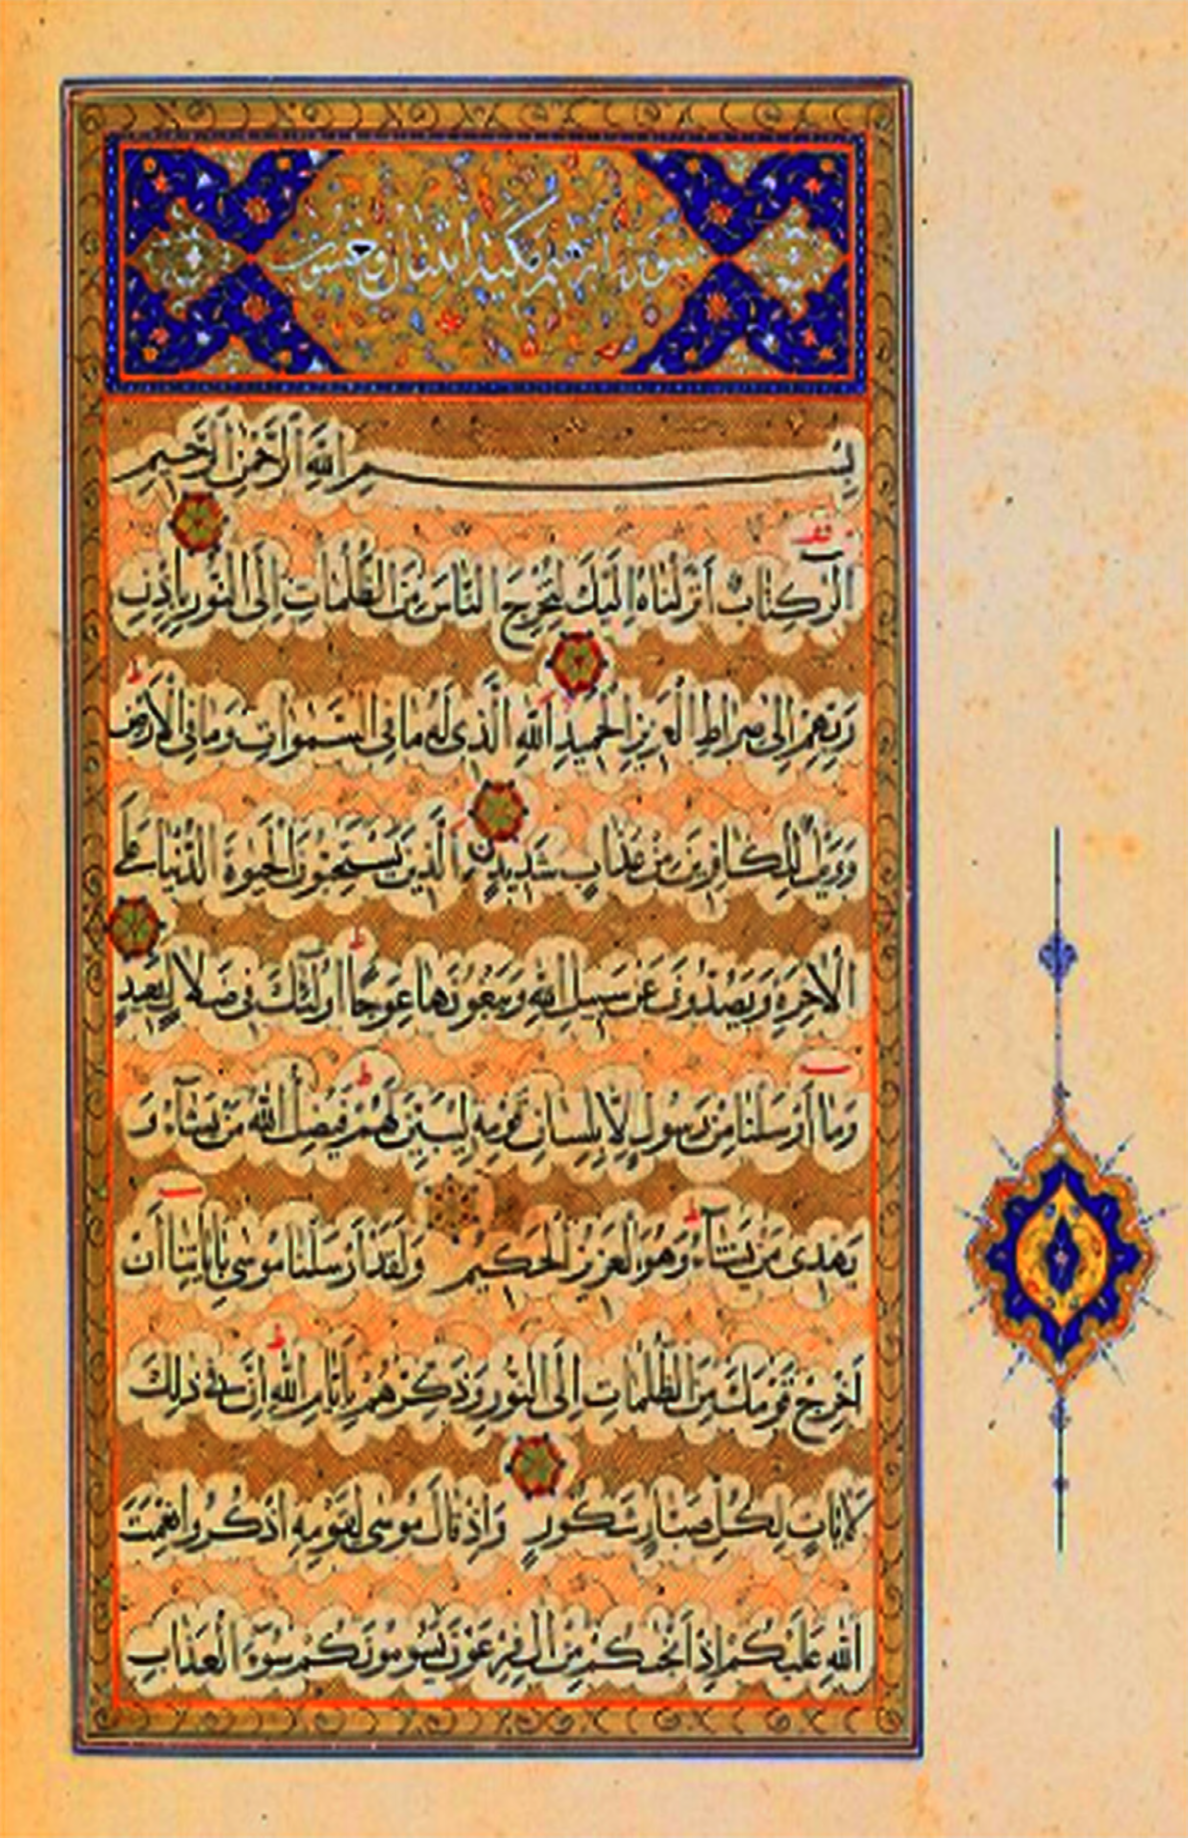 سورة ابرهيم مكية اثنتان وخمسون
بِسْمِ اللَّهِ الرَّحْمٰنِ الرَّحِيمِ
الر كِتابٌ أَنْزَلْناهُ إِلَيْكَ لِتُخْرِجَ النَّاسَ مِنَ الظُّلُماتِ إِلَى النُّورِ بِإِذْنِ
رَبِّهِمْ إِلى صِراطِ الْعَزِيزِ الْحَمِيدِ اللَّهِ الَّذِي لَهُ ما فِي السَّمواتِ وَما فِي الْأَرْضِ
وَوَيْلٌ لِلْكافِرِينَ مِنْ عَذابٍ شَدِيدٍ الَّذِينَ يَسْتَحِبُّونَ الْحَيوةَ الدُّنْيا عَلَى
الْآخِرَةِ وَيَصُدُّونَ عَنْ سَبِيلِ اللَّهِ وَيَبْغُونَها عِوَجًا أُولئِكَ فِي ضَلالٍ بَعِيدٍ
وَما أَرْسَلْنا مِنْ رَسُولٍ إِلَّا بِلِسانِ قَوْمِهِ لِيُبَيِّنَ لَهُمْ فَيُضِلُّ اللَّهُ مَنْ يَشآءُ وَ
يَهْدِي مَنْ يَشآءُ وَهُوَ الْعَزِيزُ الْحَكِيمُ وَلَقَدْ أَرْسَلْنا مُوسى بِآياتِنا أَنْ
أَخْرِجْ قَوْمَكَ مِنَ الظُّلُماتِ إِلَى النُّورِ وَذَكِّرْهُمْ بِأَيَّامِ اللَّهِ إِنَّ فِي ذلِكَ
لَآياتٍ لِكُلِّ صَبَّارٍ شَكُورٍ وَإِذْ قالَ مُوسى لِقَوْمِهِ اذْكُرُوا نِعْمَتَ
اللَّهِ عَلَيْكُمْ إِذْ أَنْجيكُمْ مِنْ الِ فِرْعَوْنَ يَسُومُونَكُمْ سُوءَ الْعَذابِ